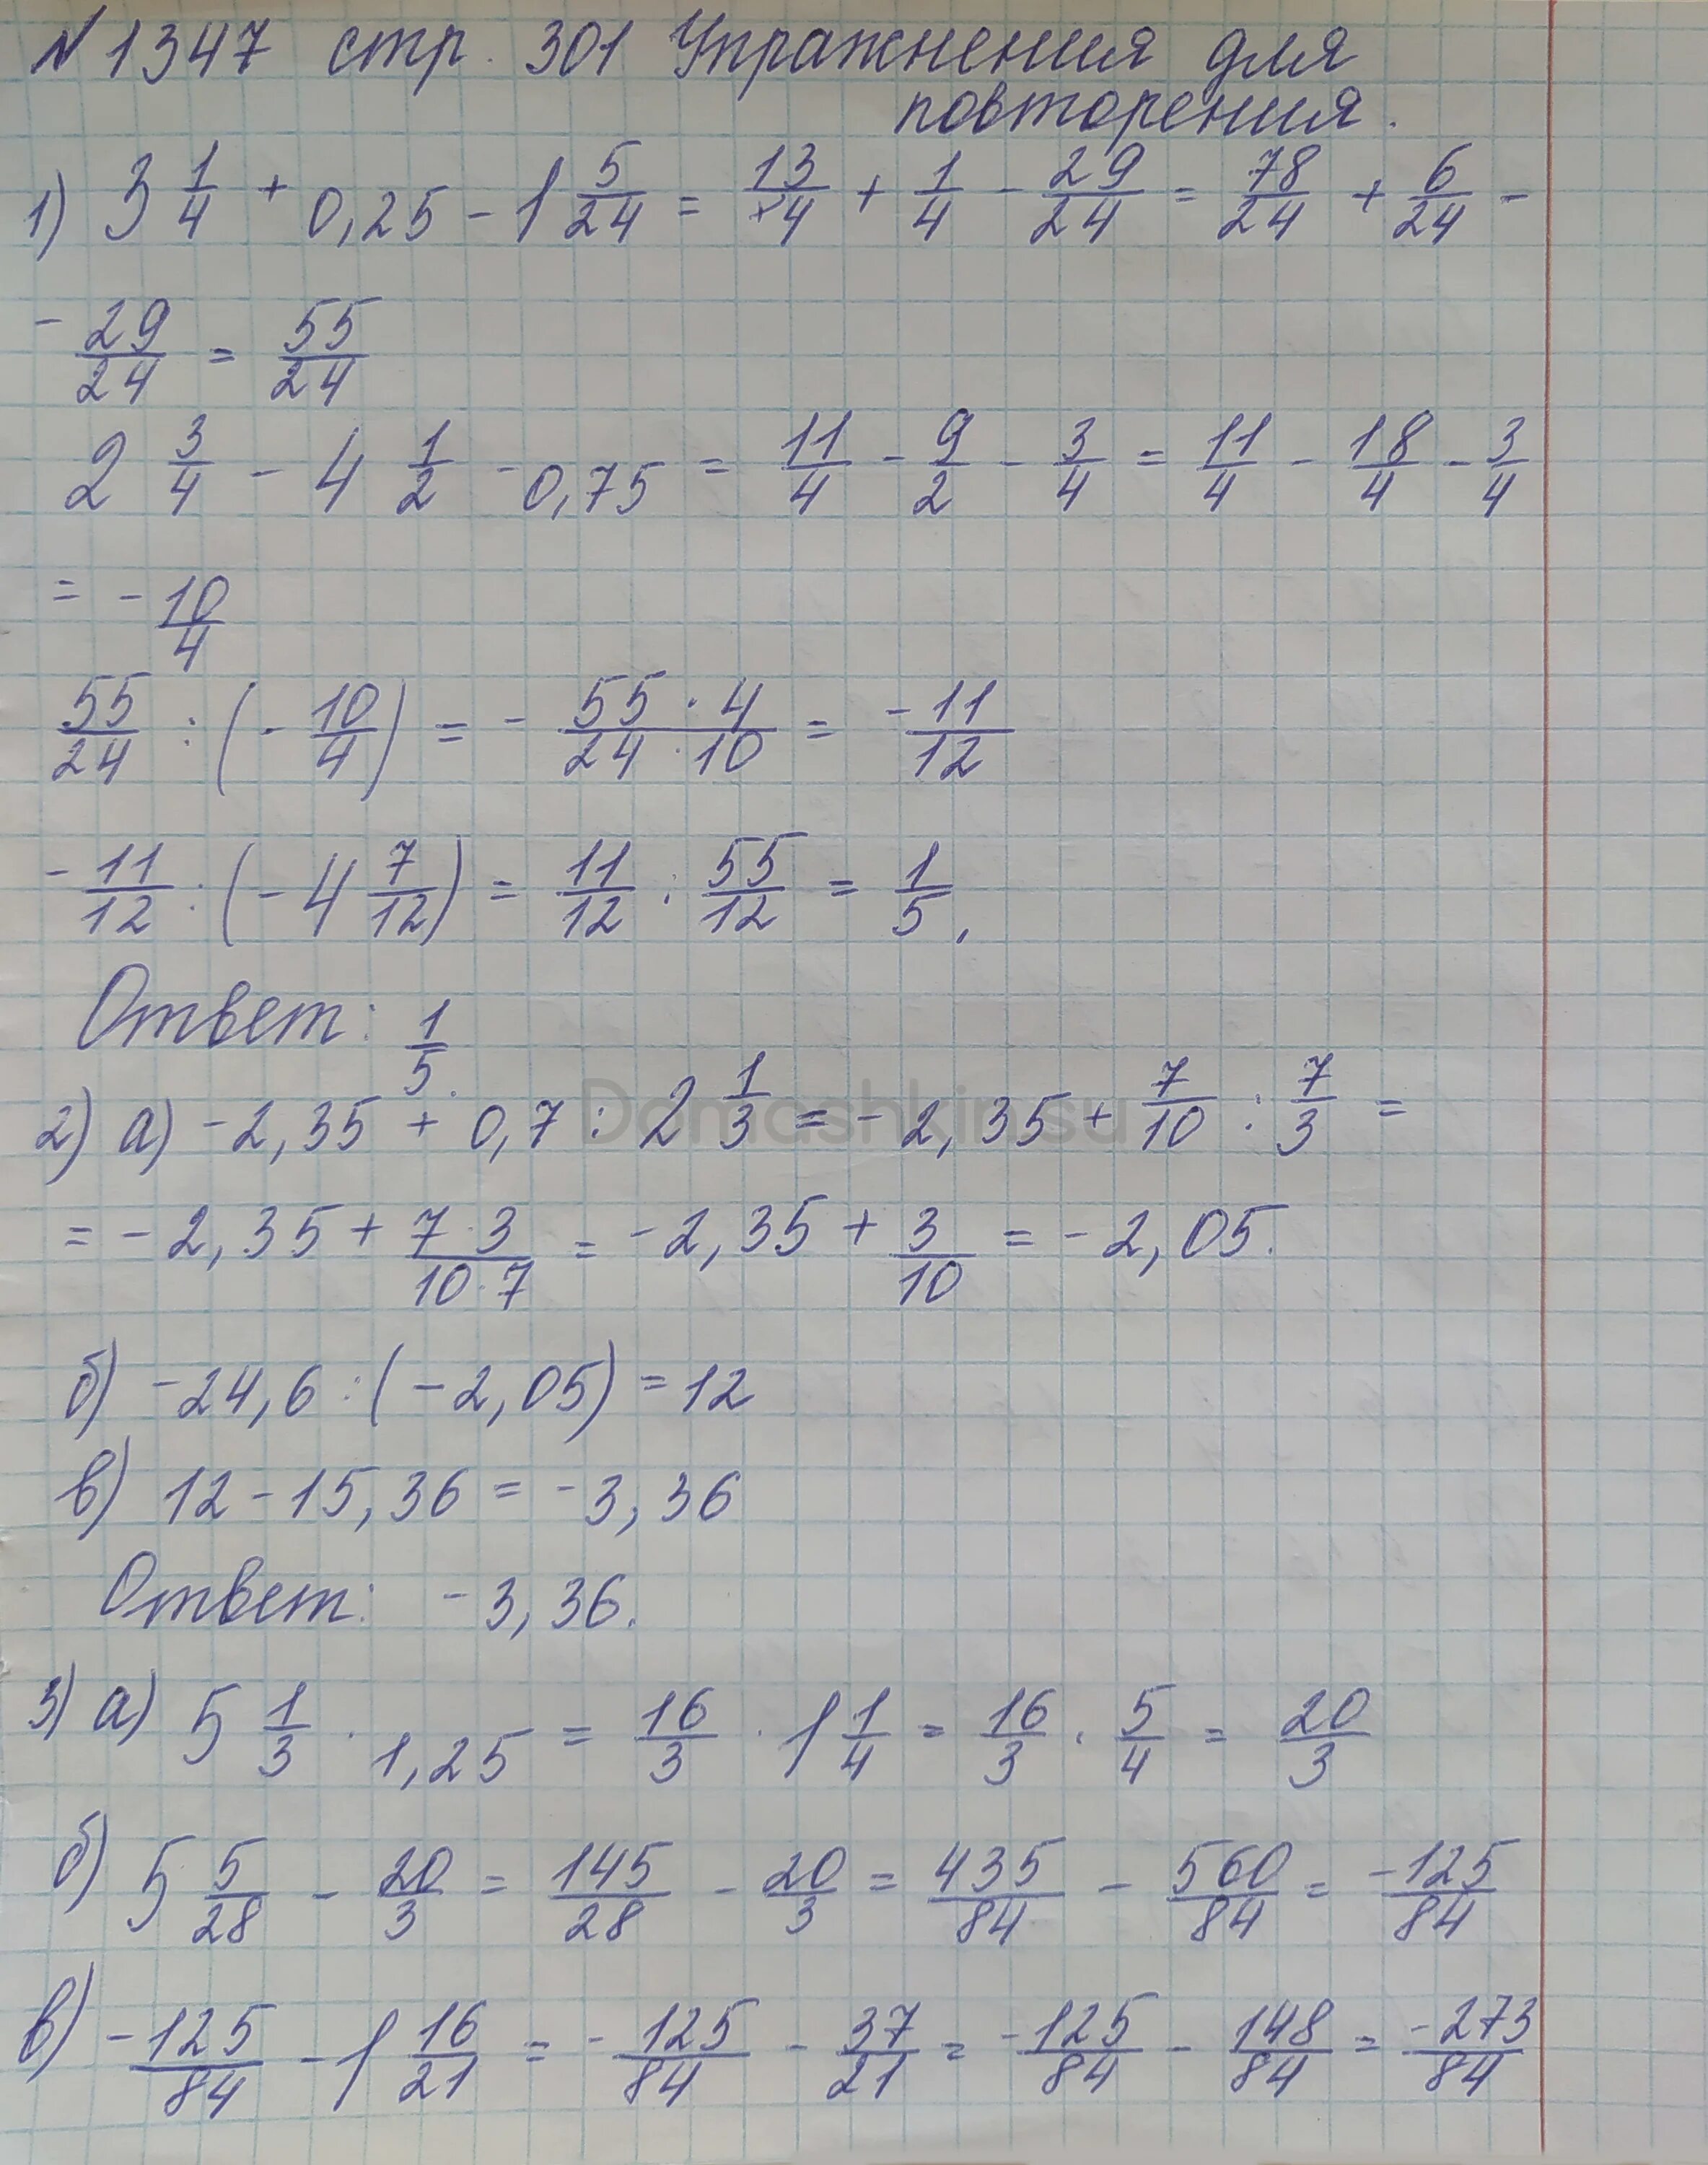 № 1347 стр. 301 Упражнения для
повторения.
1) 3 1/4 + 0,25 - 1 5/24 = 13/4 + 1/4 - 29/24 = 78/24 + 6/24 -
- 29/24 = 55/24
2 3/4 - 4 1/2 - 0,75 = 11/4 - 9/2 - 3/4 = 11/4 - 18/4 - 3/4
= - 10/4
55/24 : (- 10/4) = - 55 · 4/24 · 10 = - 11/12
- 11/12 : (- 4 7/12) = 11/12 : 55/12 = 1/5.
Ответ: 1/5.
2) а) -2,35 + 0,7 : 2 1/3 = -2,35 + 7/10 : 7/3 =
= -2,35 + 7·3/10·7 = -2,35 + 3/10 = -2,05.
б) -24,6 : (-2,05) = 12
в) 12 - 15,36 = -3,36
Ответ: -3,36.
3) а) 5 1/3 · 1,25 = 16/3 · 1 1/4 = 16/3 · 5/4 = 20/3
б) 5 5/28 - 20/3 = 145/28 - 20/3 = 435/84 - 560/84 = -125/84
в) -125/84 - 1 16/21 = - 125/84 - 37/21 = -125/84 - 148/84 = -273/84
Domashkin.su